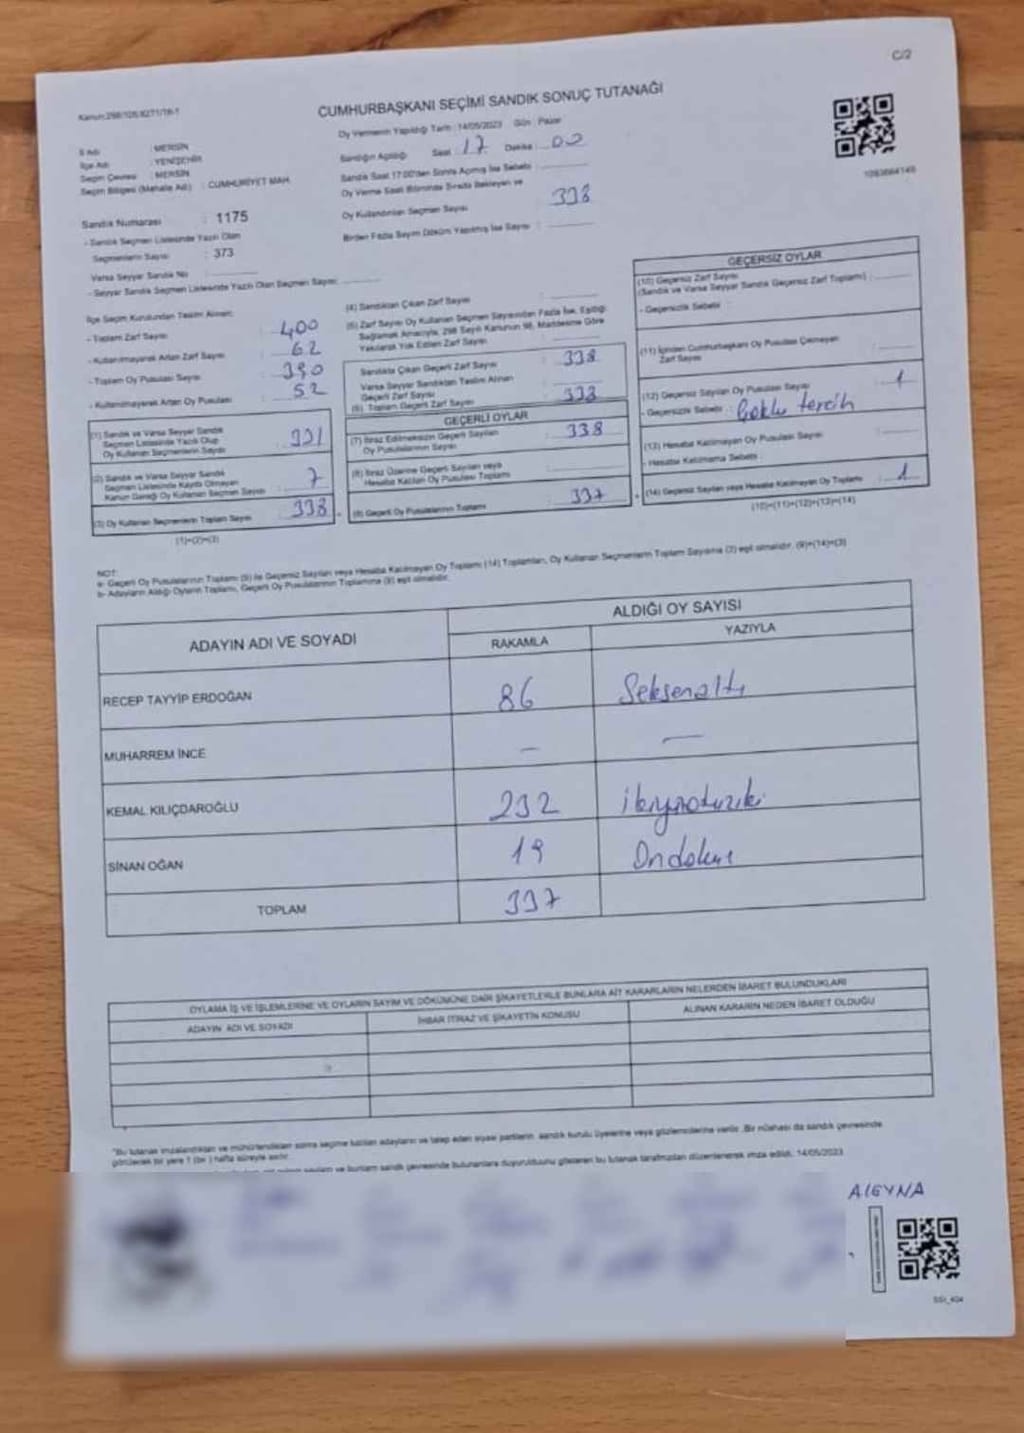 C/2
Kanun:298/105,6271/18-1
CUMHURBAŞKANI SEÇİMİ SANDIK SONUÇ TUTANAĞI
Oy Vermenin Yapıldığı Tarih :14/05/2023 Gün : Pazar
İl Adı : MERSİN
İlçe Adı : YENİŞEHİR
Seçim Çevresi : MERSİN
Seçim Bölgesi (Mahalle Adı) : CUMHURİYET MAH.
Sandığın Açıldığı Saat : 17 Dakika : 02
Sandık Saat 17:00'den Sonra Açılmış İse Sebebi :
Oy Verme Saati Bitiminde Sırada Bekleyen ve
Oy Kullandırılan Seçmen Sayısı : 338
Birden Fazla Sayım Döküm Yapılmış İse Sayısı :
1093664149
Sandık Numarası : 1175
- Sandık Seçmen Listesinde Yazılı Olan
Seçmenlerin Sayısı : 373
Varsa Seyyar Sandık No :
- Seyyar Sandık Seçmen Listesinde Yazılı Olan Seçmen Sayısı:
İlçe Seçim Kurulundan Teslim Alınan:
- Toplam Zarf Sayısı : 400
- Kullanılmayarak Artan Zarf Sayısı : 62
- Toplam Oy Pusulası Sayısı : 390
- Kullanılmayarak Artan Oy Pusulası : 52
(1) Sandık ve Varsa Seyyar Sandık
Seçmen Listesinde Yazılı Olup
Oy Kullanan Seçmenlerin Sayısı : 331
(2) Sandık ve Varsa Seyyar Sandık
Seçmen Listesinde Kayıtlı Olmayan
Kanun Gereği Oy Kullanan Seçmen Sayısı : 7
(3) Oy Kullanan Seçmenlerin Toplam Sayısı : 338
(1)+(2)=(3)
(4) Sandıktan Çıkan Zarf Sayısı :
(5) Zarf Sayısı Oy Kullanan Seçmen Sayısından Fazla İse, Eşitliği
Sağlamak Amacıyla, 298 Sayılı Kanunun 98. Maddesine Göre
Yakılarak Yok Edilen Zarf Sayısı :
Sandıkta Çıkan Geçerli Zarf Sayısı : 338
Varsa Seyyar Sandıktan Teslim Alınan
Geçerli Zarf Sayısı :
(6) Toplam Geçerli Zarf Sayısı : 338
GEÇERLİ OYLAR
(7) İtiraz Edilmeksizin Geçerli Sayılan
Oy Pusulalarının Sayısı : 338
(8) İtiraz Üzerine Geçerli Sayılan veya
Hesaba Katılan Oy Pusulası Toplamı :
(9) Geçerli Oy Pusulalarının Toplamı : 337
GEÇERSİZ OYLAR
(10) Geçersiz Zarf Sayısı
(Sandık ve Varsa Seyyar Sandık Geçersiz Zarf Toplamı) :
- Geçersizlik Sebebi :
(11) İçinden Cumhurbaşkanı Oy Pusulası Çıkmayan
Zarf Sayısı :
(12) Geçersiz Sayılan Oy Pusulası Sayısı : 1
- Geçersizlik Sebebi : Çoklu tercih
(13) Hesaba Katılmayan Oy Pusulası Sayısı :
- Hesaba Katılmama Sebebi :
(14) Geçersiz Sayılan veya Hesaba Katılmayan Oy Toplamı : 1
(10)+(11)+(12)+(13)=(14)
NOT:
a- Geçerli Oy Pusulalarının Toplamı (9) ile Geçersiz Sayılan veya Hesaba Katılmayan Oy Toplamı (14) Toplamları, Oy Kullanan Seçmenlerin Toplam Sayısına (3) eşit olmalıdır. (9)+(14)=(3)
b- Adayların Aldığı Oyların Toplamı, Geçerli Oy Pusulalarının Toplamına (9) eşit olmalıdır.
ADAYIN ADI VE SOYADI
ALDIĞI OY SAYISI
RAKAMLA YAZIYLA
RECEP TAYYİP ERDOĞAN 86 Seksenaltı
MUHARREM İNCE — —
KEMAL KILIÇDAROĞLU 232 ikiyüzotuziki
SİNAN OĞAN 19 Ondokuz
TOPLAM 337
OYLAMA İŞ VE İŞLEMLERİNE VE OYLARIN SAYIM VE DÖKÜMÜNE DAİR ŞİKAYETLERLE BUNLARA AİT KARARLARIN NELERDEN İBARET BULUNDUKLARI
ADAYIN ADI VE SOYADI İHBAR İTİRAZ VE ŞİKAYETİN KONUSU ALINAN KARARIN NEDEN İBARET OLDUĞU
"Bu tutanak imzalandıktan ve mühürlendikten sonra seçime katılan adayların ve talep eden siyasi partilerin, sandık kurulu üyelerine veya gözlemcilerine verilir. Bir nüshası da sandık çevresinde
görülecek bir yere 1 (bir) hafta süreyle asılır.
ve bunların sandık çevresinde bulunanlara duyurulduğunu gösteren bu tutanak tarafımızdan düzenlenerek imza edildi. 14/05/2023
AlEYNA